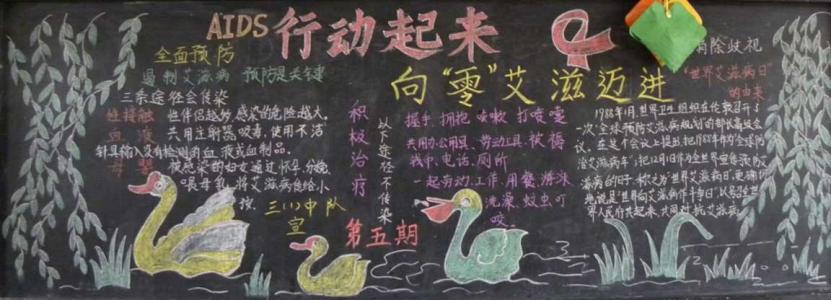 AIDS行动起来
向“零”艾滋迈进
全面预防
遏制艾滋病 预防是关键
三条途径会传染
性接触 性伴侣越多感染的危险越大。
血液 共用注射器吸毒,使用不洁
针具输入没有检测的血液或血制品。
母婴 被感染的妇女通过怀孕、分娩、
喂母乳,将艾滋病传给小
孩.
三(1)中队
宣
积极治疗
以下途径不传染
握手 拥抱 咳嗽 打喷嚏
共用办公用具、劳动工具、被褥
钱币、电话、厕所
一起劳动、工作、用餐、游泳
洗澡、蚊虫叮
咬
第五期
消除歧视
“世界艾滋病日”
的由来
1988年1月,世界卫生组织在伦敦召开了
一次“全球预防艾滋病规划”的部长高级会
议。在这个会议上提出把1988年作为全球防
治艾滋病年,把12月1日作为世界宣传预防